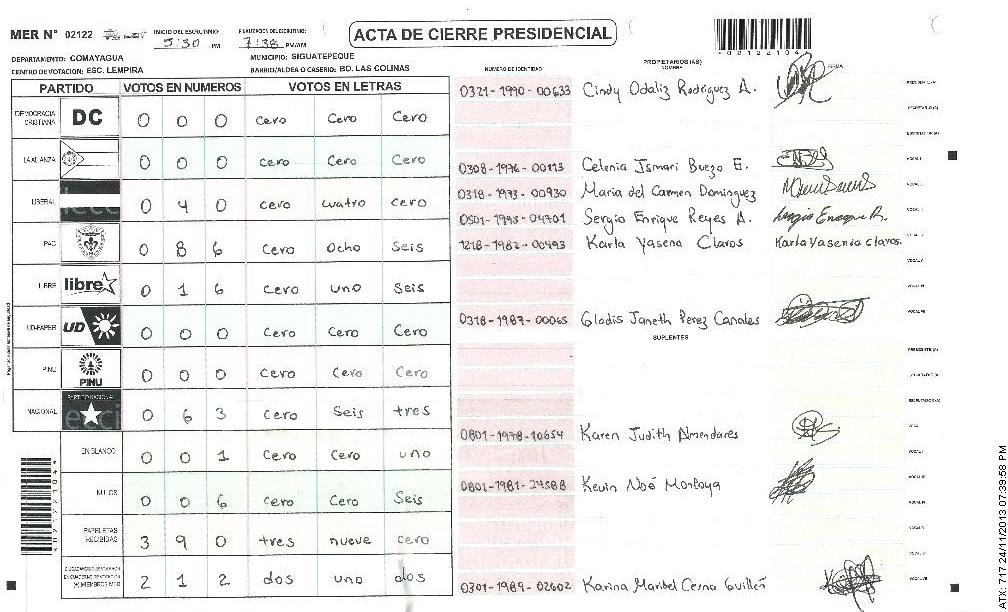 MER N° 02122 INICIO DEL ESCRUTINIO: 5:30 PM FINALIZACION DEL ESCRUTINIO: 7:38 PM/AM
ACTA DE CIERRE PRESIDENCIAL
02122104
DEPARTAMENTO: COMAYAGUA MUNICIPIO: SIGUATEPEQUE
CENTRO DE VOTACION: ESC. LEMPIRA BARRIO/ALDEA O CASERIO: BO. LAS COLINAS
PARTIDO VOTOS EN NUMEROS VOTOS EN LETRAS
DEMOCRACIA CRISTIANA DC 0 0 0 cero Cero Cero
LA ALIANZA 0 0 0 cero Cero Cero
LIBERAL 0 4 0 cero cuatro cero
PAC 0 8 6 Cero ocho Seis
LIBRE libre 0 1 6 Cero uno Seis
UD-FAPER UD 0 0 0 Cero Cero Cero
PINU PINU 0 0 0 Cero Cero Cero
NACIONAL PARTIDO NACIONAL 0 6 3 Cero Seis tres
EN BLANCO 0 0 1 Cero Cero uno
NULOS 0 0 6 Cero Cero Seis
PAPELETAS RECIBIDAS 3 9 0 tres nueve cero
CIUDADANOS QUE VOTARON EN CUADERNO DE VOTACION (+) MIEMBROS MER 2 1 2 dos uno dos
NUMERO DE IDENTIDAD PROPIETARIOS (AS) NOMBRE FIRMA
0321-1990-00633 Cindy Odaliz Rodriguez A. PRESIDENTE (A)
SECRETARIO (A)
ESCRUTADOR (A)
0308-1976-00113 Celenia Ismari Buezo E. VOCAL I
0318-1973-00930 Maria del Carmen Dominguez
0501-1995-04701 Sergio Enrique Reyes A. Sergio Enrique R.
1218-1982-00493 Karla Yasena Claros Karla Yasenia Claros.
0318-1987-00065 Gladis Janeth Perez Canales
SUPLENTES
PRESIDENTE (A)
ESCRUTADOR (A)
0801-1978-10654 Karen Judith Almendares
0801-1981-24588 Kevin Noé Montoya
0301-1989-02602 Karina Maribel Cerna Guillén
ATX 717 24/11/2013 07:39:58 PM